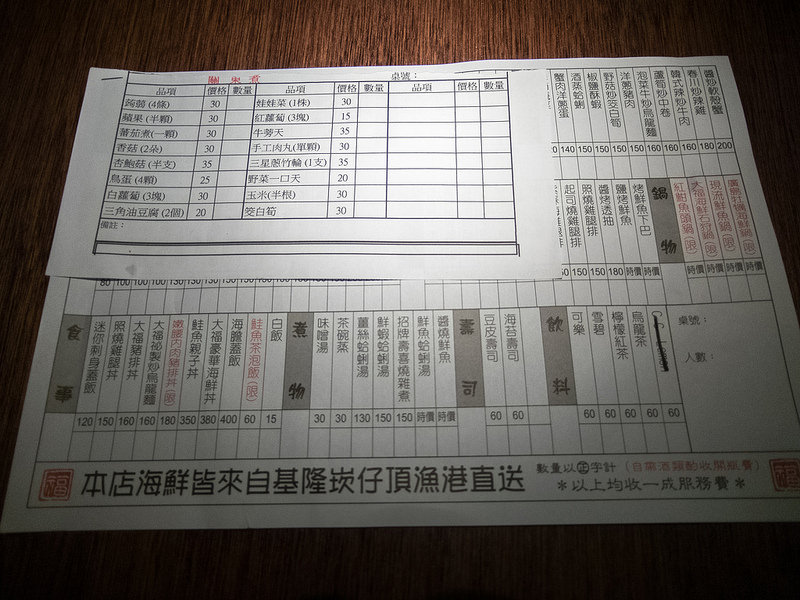 關東煮 桌號：
品項 價格 數量 品項 價格 數量 品項 價格 數量
蒟蒻 (4條) 30 娃娃菜 (1株) 30
蘋果 (半顆) 30 紅蘿蔔 (3塊) 15
蕃茄煮(一顆) 30 牛蒡天 35
香菇 (2朵) 30 手工肉丸(單顆) 30
杏鮑菇 (半支) 35 三星蔥竹輪 (1支) 35
鳥蛋 (4顆) 25 野菜一口天 20
白蘿蔔 (3塊) 30 玉米(半根) 30
三角油豆腐 (2個) 20 茭白筍 30
備註：
醬炒軟殼蟹 200
春川炒辣雞 180
韓式辣炒牛肉 160
蘆筍炒中卷 160
泡菜牛炒烏龍麵 160
洋蔥豬肉 150
野菇炒茭白筍 150
椒鹽酥蝦 150
酒蒸蛤蜊 140
蟹肉洋蔥蛋
廣島牡蠣海鮮鍋(限) 時價
現流鮮魚鍋(限) 時價
大福海鮮石狩鍋(限) 時價
紅魽魚頭鍋(限) 時價
鍋物
烤鮮魚下巴 時價
鹽烤鮮魚 時價
醬烤透抽 180
照燒雞腿排 150
起司燒雞腿排 150
桌號：
人數：
60
烏龍茶 60
檸檬紅茶 60
雪碧 60
可樂 60
飲料
海苔壽司 60
豆皮壽司 60
壽司
醬燒鮮魚 時價
鮮魚蛤蜊湯 時價
招牌壽喜燒雜煮 150
鮮蝦蛤蜊湯 150
薑絲蛤蜊湯 130
茶碗蒸 30
味噌湯 30
煮物
白飯 15
鮭魚茶泡飯(限) 60
海膽蓋飯 400
大福豪華海鮮丼 380
鮭魚親子丼 350
嫩腰內肉豬排丼(限) 180
大福秘製炒烏龍麵 160
大福豬排丼 160
照燒雞腿丼 150
迷你刺身蓋飯 120
食事
福 本店海鮮皆來自基隆崁仔頂漁港直送 福
數量以正字計 (自備酒類酌收開瓶費)
＊以上均收一成服務費＊